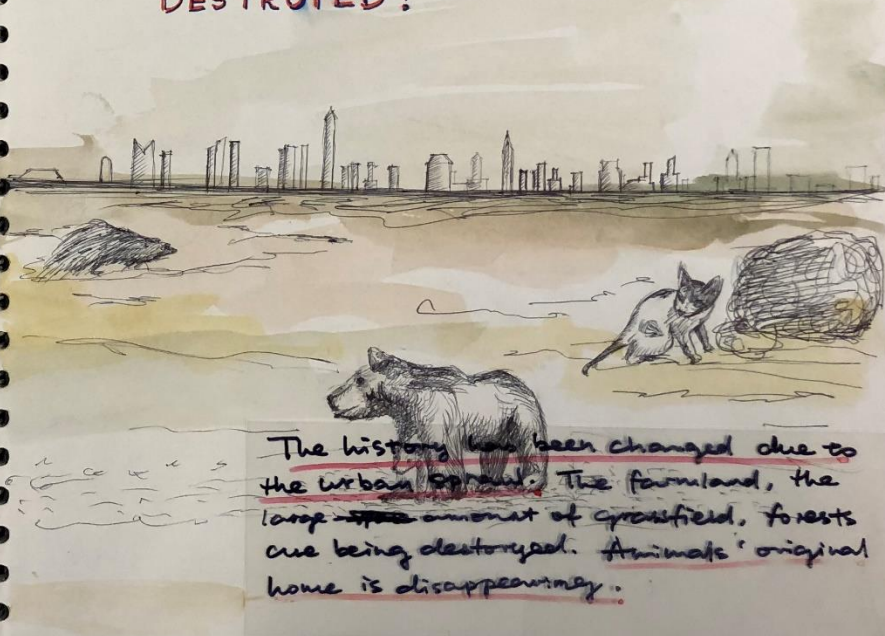 DESTROYED!
The history has been changed due to
the urban sprawl. The farmland, the
large amount of grassfield, forests
are being destoryed. Animals' original
home is disappearing.